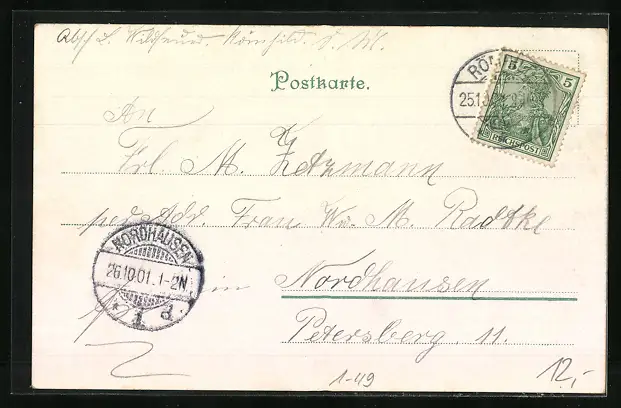 Römhild. S. M.
Postkarte.
RÖ
25.1
5 5
REICHSPOST
An
Frl. M. Zetzmann
per Adr. Frau Ww. M. Radtke
NORDHAUSEN
26.10.01. 1-2N
* 1 d.
in Nordhausen
Petersberg 11.
1-49
12,-